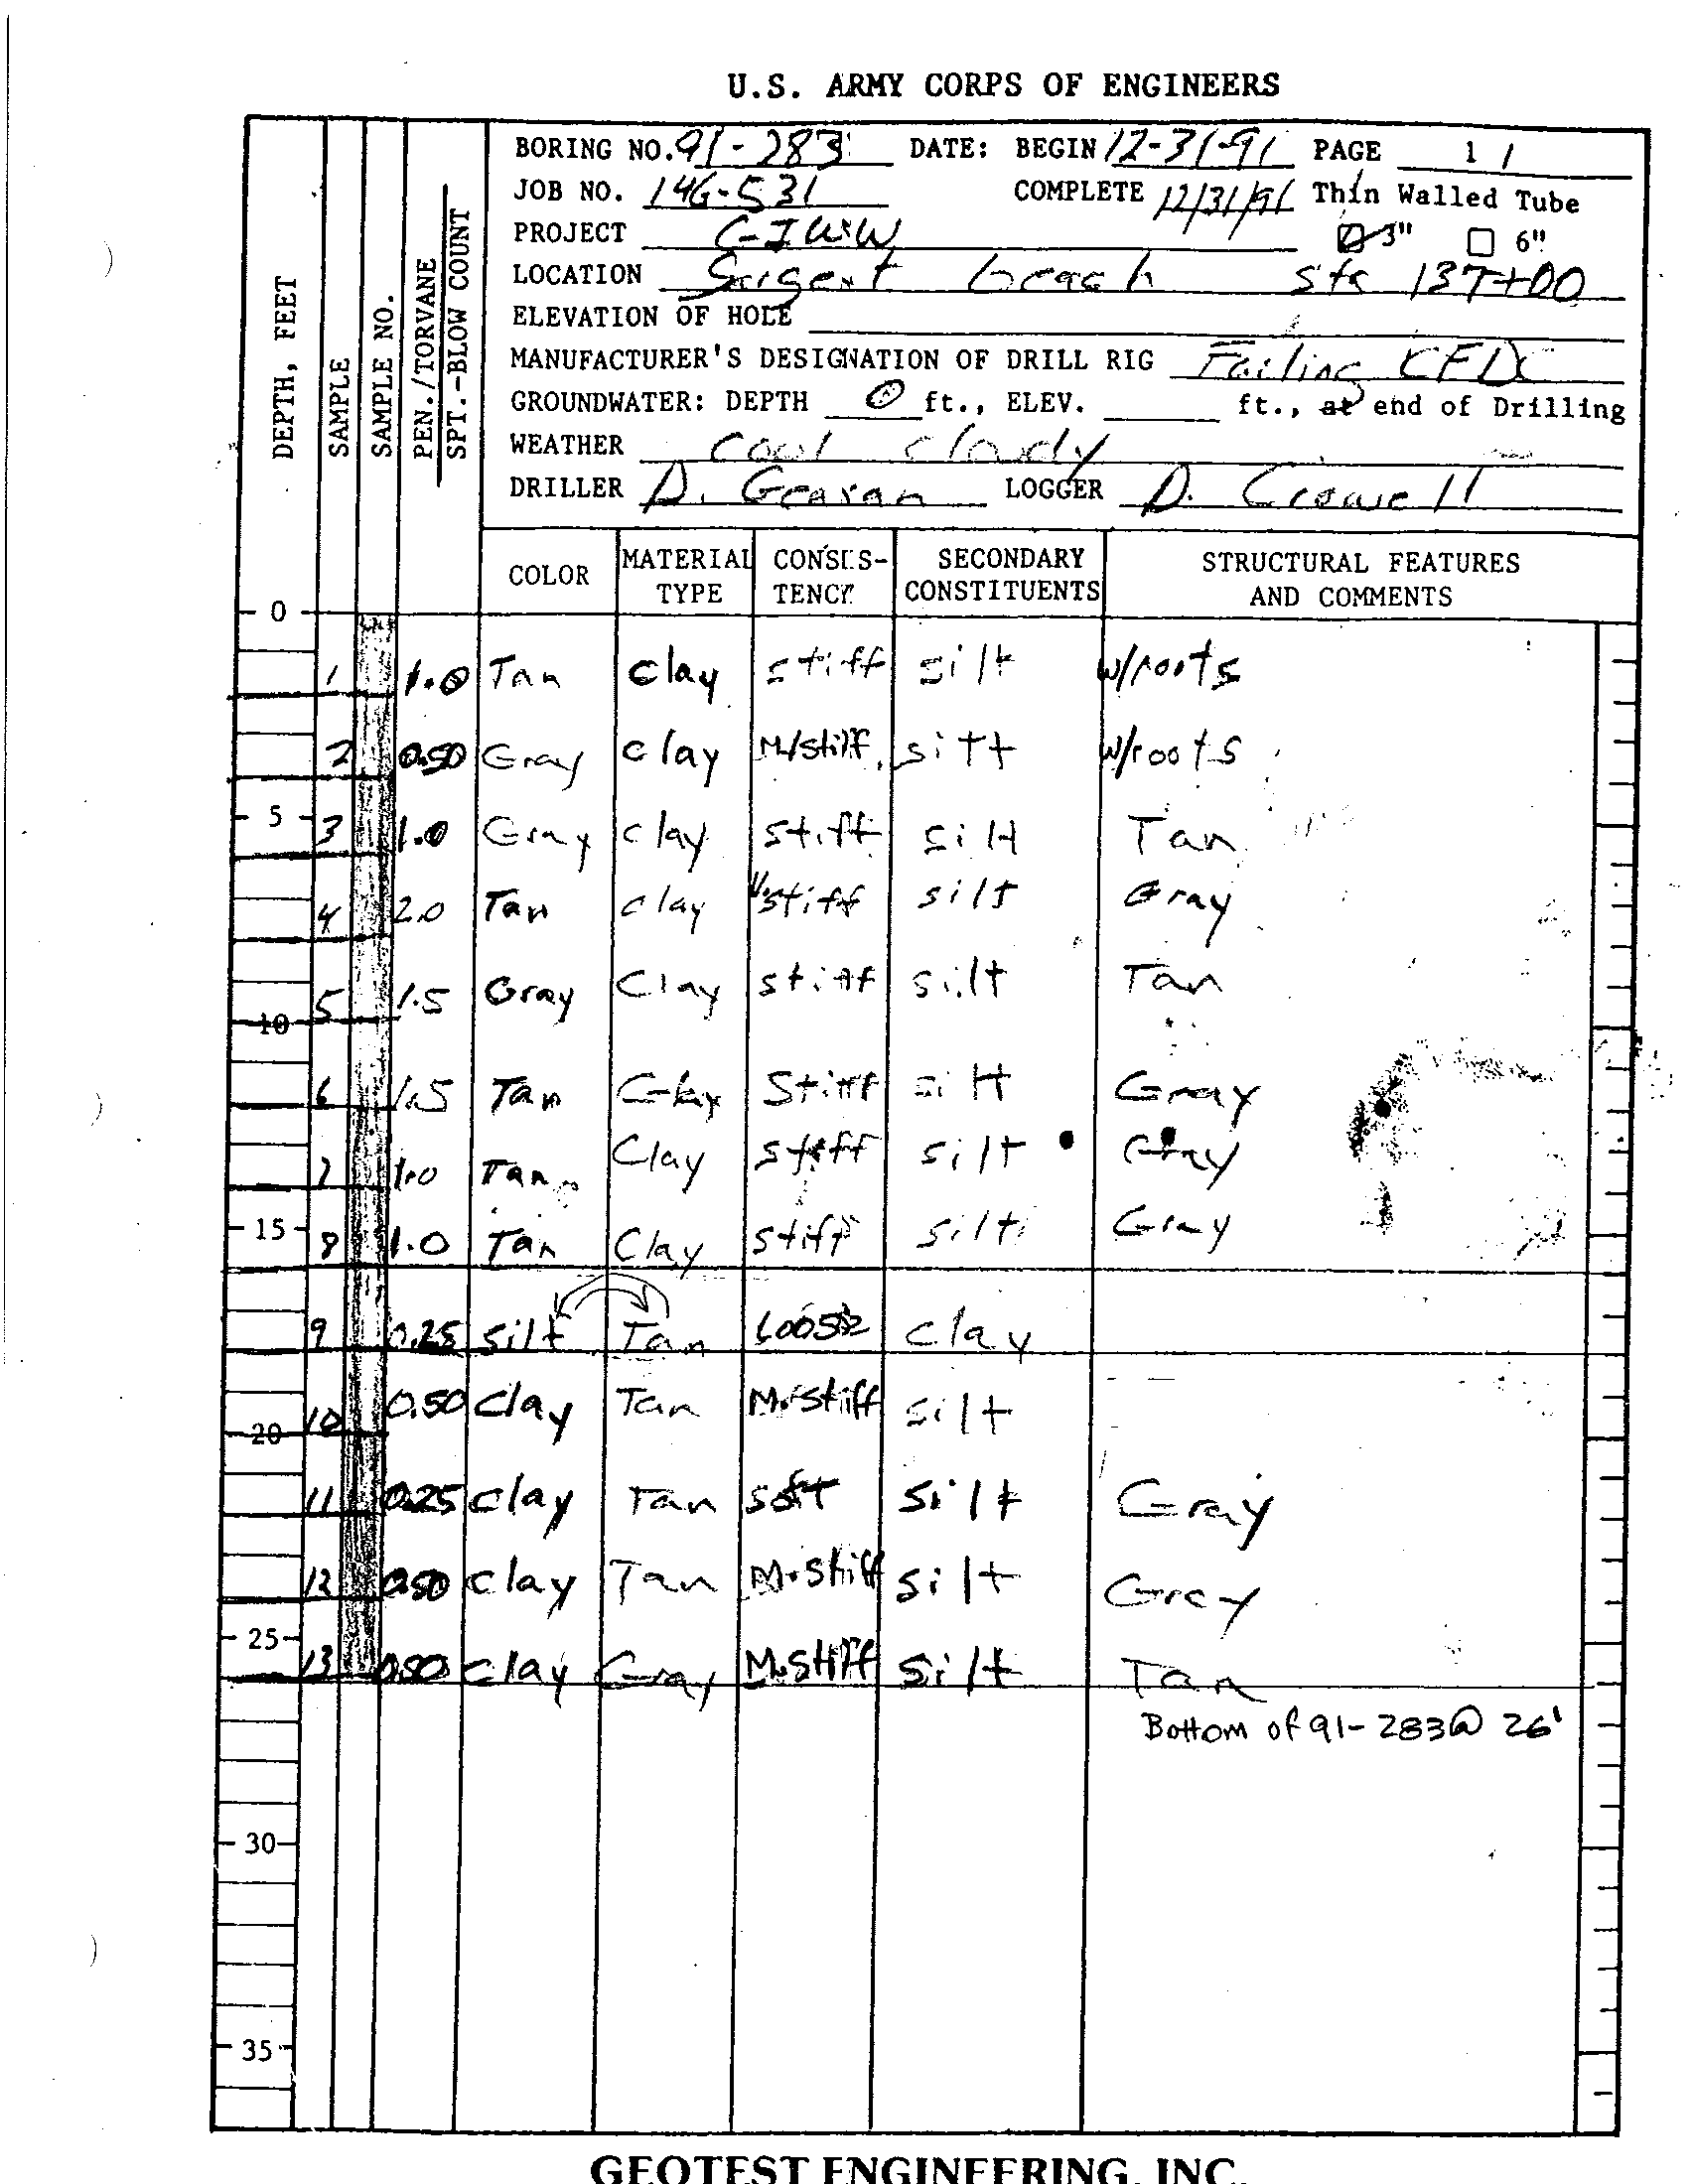 U.S. ARMY CORPS OF ENGINEERS
BORING NO. 91-283 DATE: BEGIN 12-31-91 PAGE 1 /
JOB NO. 146-531 COMPLETE 12/31/91 Thin Walled Tube
PROJECT G-IWW 3" 6"
LOCATION Sargent beach Sta 137+00
ELEVATION OF HOLE
MANUFACTURER'S DESIGNATION OF DRILL RIG Failing CFDC
GROUNDWATER: DEPTH 0 ft., ELEV. ft., at end of Drilling
WEATHER Cool cloudy
DRILLER D. LOGGER D. Crowell
DEPTH, FEET
SAMPLE
SAMPLE NO.
PEN./TORVANE
SPT.-BLOW COUNT
COLOR MATERIAL TYPE CONSIS-TENCY SECONDARY CONSTITUENTS STRUCTURAL FEATURES AND COMMENTS
0
1 1.0 Tan clay stiff silt w/roots
2 0.50 Gray clay M/stiff silt w/roots
5
3 1.0 Gray clay stiff silt Tan
4 2.0 Tan clay V.stiff silt Gray
5 1.5 Gray Clay stiff silt Tan
10
6 1.5 Tan Clay Stiff silt Gray
7 1.0 Tan Clay stiff silt Gray
15
8 1.0 Tan Clay stiff silt Gray
9 0.25 silt Tan Loose clay
10 0.50 clay Tan M.stiff silt
20
11 0.25 clay Tan soft silt Gray
12 0.50 clay Tan M.stiff silt Gray
25
13 0.50 clay Gray M.stiff silt Tan
Bottom of 91-283@ 26'
30
35
GEOTEST ENGINEERING, INC.